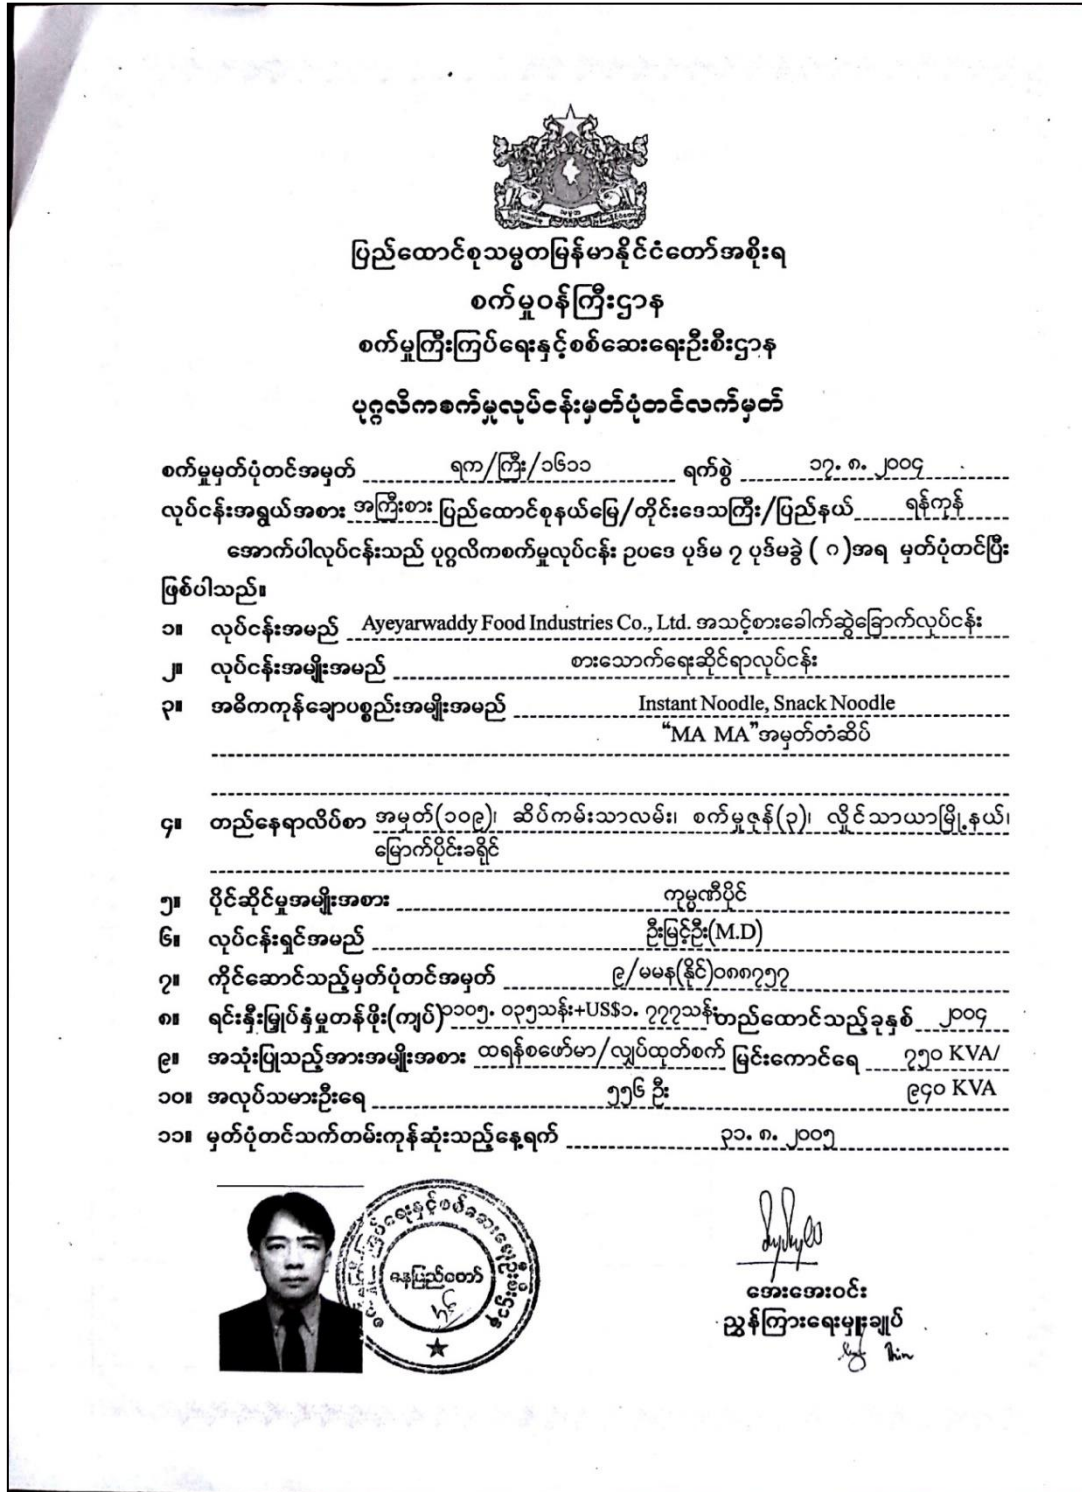 ပြည်ထောင်စုသမ္မတမြန်မာနိုင်ငံတော်အစိုးရ
စက်မှုဝန်ကြီးဌာန
စက်မှုကြီးကြပ်ရေးနှင့်စစ်ဆေးရေးဦးစီးဌာန
ပုဂ္ဂလိကစက်မှုလုပ်ငန်းမှတ်ပုံတင်လက်မှတ်
စက်မှုမှတ်ပုံတင်အမှတ် ရက/ကြီး/၁၆၁၁ ရက်စွဲ ၁၇. ၈. ၂၀၀၄
လုပ်ငန်းအရွယ်အစား အကြီးစား ပြည်ထောင်စုနယ်မြေ/တိုင်းဒေသကြီး/ပြည်နယ် ရန်ကုန်
အောက်ပါလုပ်ငန်းသည် ပုဂ္ဂလိကစက်မှုလုပ်ငန်း ဥပဒေ ပုဒ်မ ၇ ပုဒ်မခွဲ ( ဂ )အရ မှတ်ပုံတင်ပြီး
ဖြစ်ပါသည်။
၁။ လုပ်ငန်းအမည် Ayeyarwaddy Food Industries Co., Ltd. အသင့်စားခေါက်ဆွဲခြောက်လုပ်ငန်း
၂။ လုပ်ငန်းအမျိုးအမည် စားသောက်ရေးဆိုင်ရာလုပ်ငန်း
၃။ အဓိကကုန်ချောပစ္စည်းအမျိုးအမည် Instant Noodle, Snack Noodle
“MA MA”အမှတ်တံဆိပ်
၄။ တည်နေရာလိပ်စာ အမှတ်(၁၀၉)၊ ဆိပ်ကမ်းသာလမ်း၊ စက်မှုဇုန်(၃)၊ လှိုင်သာယာမြို့နယ်၊
မြောက်ပိုင်းခရိုင်
၅။ ပိုင်ဆိုင်မှုအမျိုးအစား ကုမ္ပဏီပိုင်
၆။ လုပ်ငန်းရှင်အမည် ဦးမြင့်ဦး(M.D)
၇။ ကိုင်ဆောင်သည့်မှတ်ပုံတင်အမှတ် ၉/မမန(နိုင်)၀၈၈၇၅၇
၈။ ရင်းနှီးမြှုပ်နှံမှုတန်ဖိုး(ကျပ်)၁၁၀၅. ၀၃၅သန်း+US$၁. ၇၇၇သန်း တည်ထောင်သည့်ခုနှစ် ၂၀၀၄
၉။ အသုံးပြုသည့်အားအမျိုးအစား ထရန်စဖော်မာ/လျှပ်ထုတ်စက် မြင်းကောင်ရေ ၇၅၀ KVA/
၁၀။ အလုပ်သမားဦးရေ ၅၅၆ ဦး ၉၄၀ KVA
၁၁။ မှတ်ပုံတင်သက်တမ်းကုန်ဆုံးသည့်နေ့ရက် ၃၁. ၈. ၂၀၀၅
နေပြည်တော်
အေးအေးဝင်း
ညွှန်ကြားရေးမှူးချုပ်